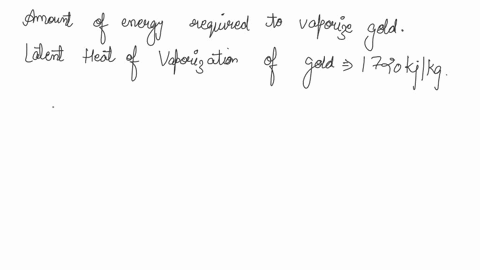 Amount of energy required to vaporize gold.
Latent Heat of Vaporization of gold ⇒ 1720 kj/kg.